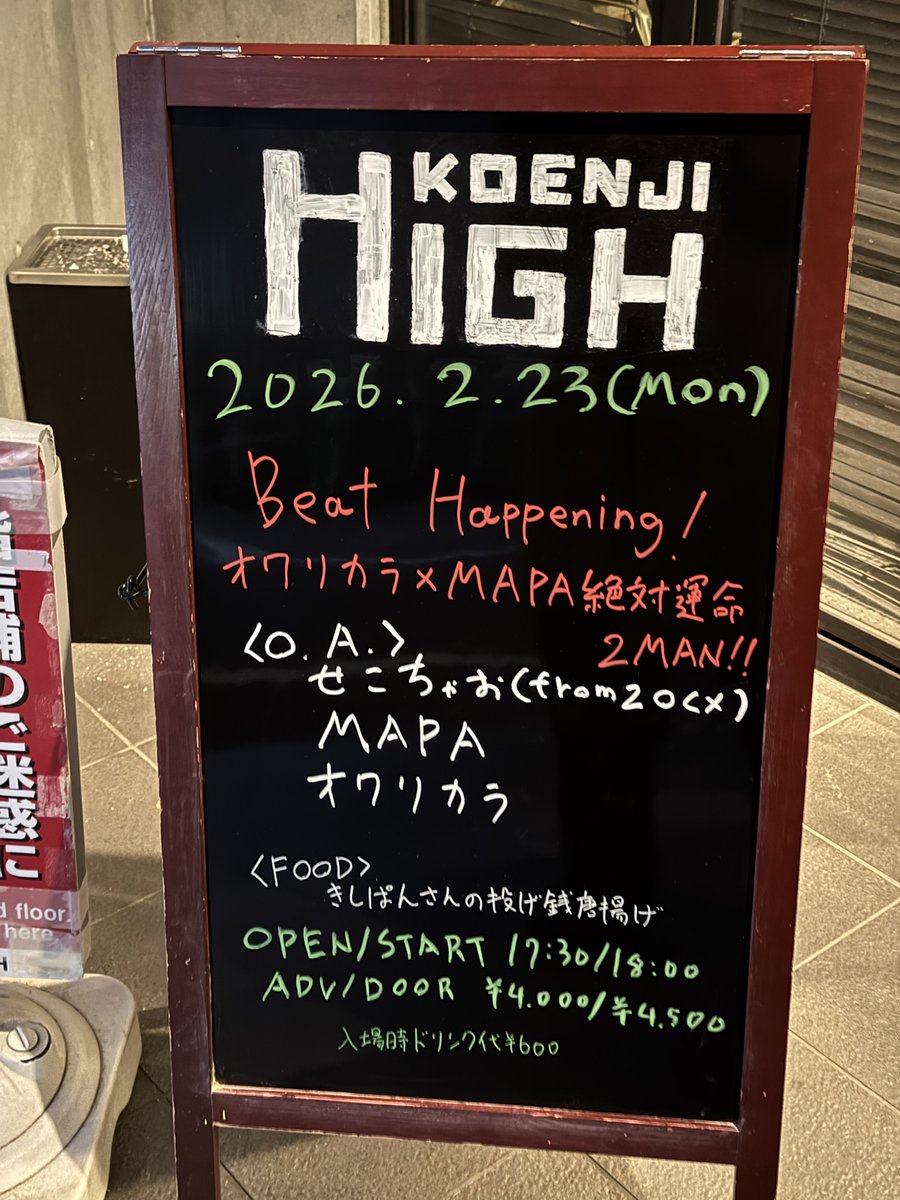 KOENJI
HIGH
2026.2.23(Mon)
Beat Happening!
オワリカラ×MAPA絶対運命
2MAN!!
<O.A.>
せこちゃお(from20CX)
MAPA
オワリカラ
<FOOD>
きしぱんさんの投げ銭唐揚げ
OPEN/START 17:30/18:00
ADV/DOOR ¥4.000/¥4.500
入場時ドリンク代¥600
店舗のご迷惑に
d floor.
here
H